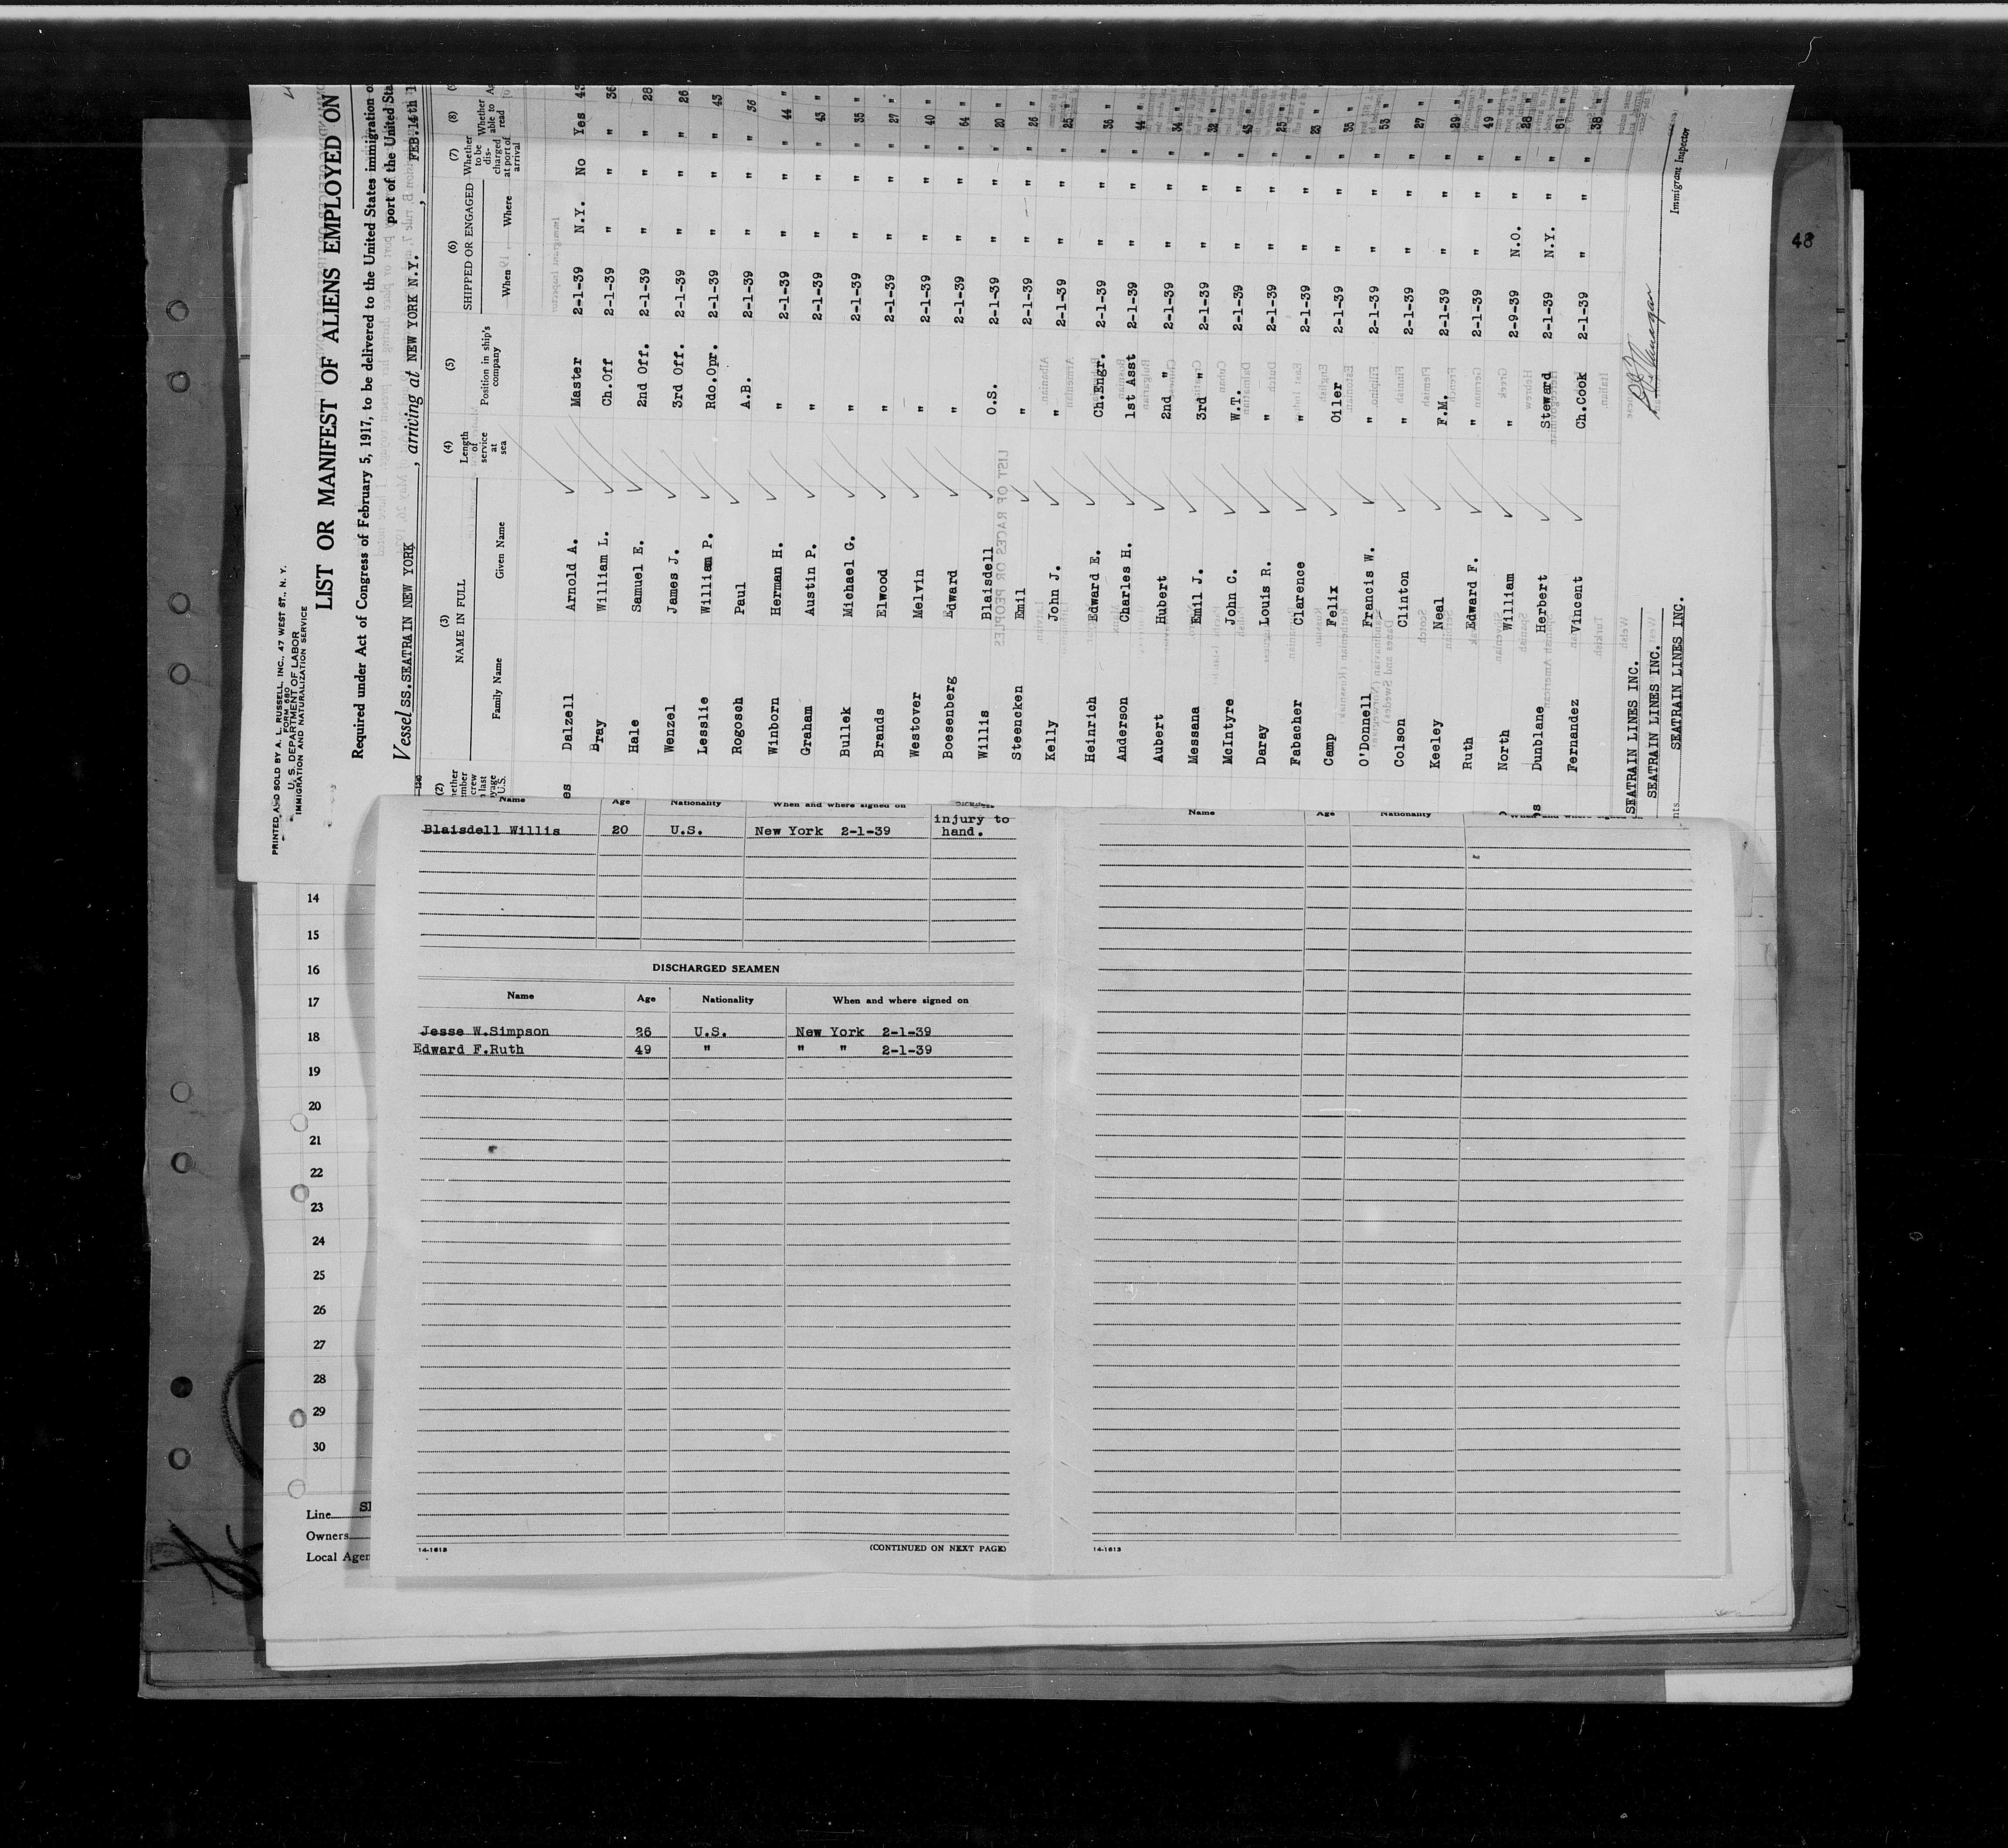 PRINTED AND SOLD BY A. L. RUSSELL, INC., 47 WEST ST., N. Y.
FORM 680
U. S. DEPARTMENT OF LABOR
IMMIGRATION AND NATURALIZATION SERVICE
LIST OR MANIFEST OF ALIENS EMPLOYED ON
Required under Act of Congress of February 5, 1917, to be delivered to the United States immigration
port of the United Sta
Vessel SS.SEATRAIN NEW YORK , arriving at NEW YORK N.Y. , FEB.14th 1
(2) (3) (4) (5) (6) (7) (8)
NAME IN FULL
Family Name Given Name
Length of service at sea
Position in ship's company
SHIPPED OR ENGAGED
When Where
Whether to be discharged at port of arrival
Whether able to read
Dalzell Arnold A. Master 2-1-39 N.Y. No Yes 43
Bray William L. Ch.Off 2-1-39 " " " 36
Hale Samuel E. 2nd Off. 2-1-39 " " " 28
Wenzel James J. 3rd Off. 2-1-39 " " " 26
Lesslie William P. Rdo.Opr. 2-1-39 " " " 43
Rogosch Paul A.B. 2-1-39 " " " 36
Winborn Herman H. " 2-1-39 " " " 44 "
Graham Austin P. " 2-1-39 " " " 43 "
Bullek Michael G. " 2-1-39 " " " 35 "
Brands Elwood " 2-1-39 " " " 27 "
Westover Melvin " 2-1-39 " " " 40 "
Boesenberg Edward " 2-1-39 " " " 64 "
Willis Blaisdell O.S. 2-1-39 " " " 20 "
Steencken Emil " 2-1-39 " " " 26 "
Kelly John J. " 2-1-39 " " " 25 "
Heinrich Edward E. Ch.Engr. 2-1-39 " " " 36 "
Anderson Charles H. 1st Asst 2-1-39 " " " 44 "
Aubert Hubert 2nd " 2-1-39 " " " 34 "
Messana Emil J. 3rd " 2-1-39 " " " 32 "
McIntyre John C. W.T. 2-1-39 " " " 43 "
Daray Louis R. " 2-1-39 " " " 25 "
Fabacher Clarence " 2-1-39 " " " 23 "
Camp Felix Oiler 2-1-39 " " " 35 "
O'Donnell Francis W. " 2-1-39 " " " 53 "
Colson Clinton " 2-1-39 " " " 27 "
Keeley Neal F.M. 2-1-39 " " " 29 "
Ruth Edward F. " 2-1-39 " " " 49 "
North William " 2-9-39 N.O. " " 28 "
Dunblane Herbert Steward 2-1-39 N.Y. " " 61 "
Fernandez Vincent Ch.Cook 2-1-39 " " " 38 "
SEATRAIN LINES INC.
SEATRAIN LINES INC.
SEATRAIN LINES INC.
Immigrant Inspector
LIST OF RACES OR PEOPLES
48
Name Age Nationality When and where signed on
Blaisdell Willis 20 U.S. New York 2-1-39 injury to
hand.
DISCHARGED SEAMEN
Name Age Nationality When and where signed on
Jesse W.Simpson 26 U.S. New York 2-1-39
Edward F.Ruth 49 " " " 2-1-39
14-1613
(CONTINUED ON NEXT PAGE)
Name Age Nationality
14-1613
14
15
16
17
18
19
20
21
22
23
24
25
26
27
28
29
30
Line
Owners
Local Agen